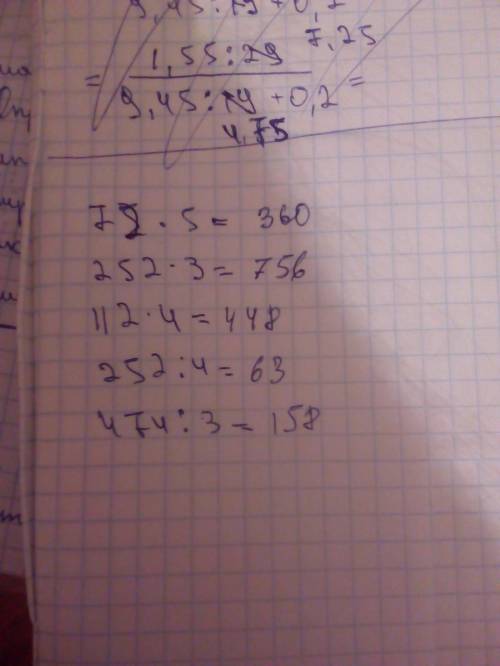 9,45:19+0,2
7,25
= 1,55:29
9,45:19+0,2 =
4,75
72·5= 360
252·3=756
112·4=448
252:4=63
474:3=158